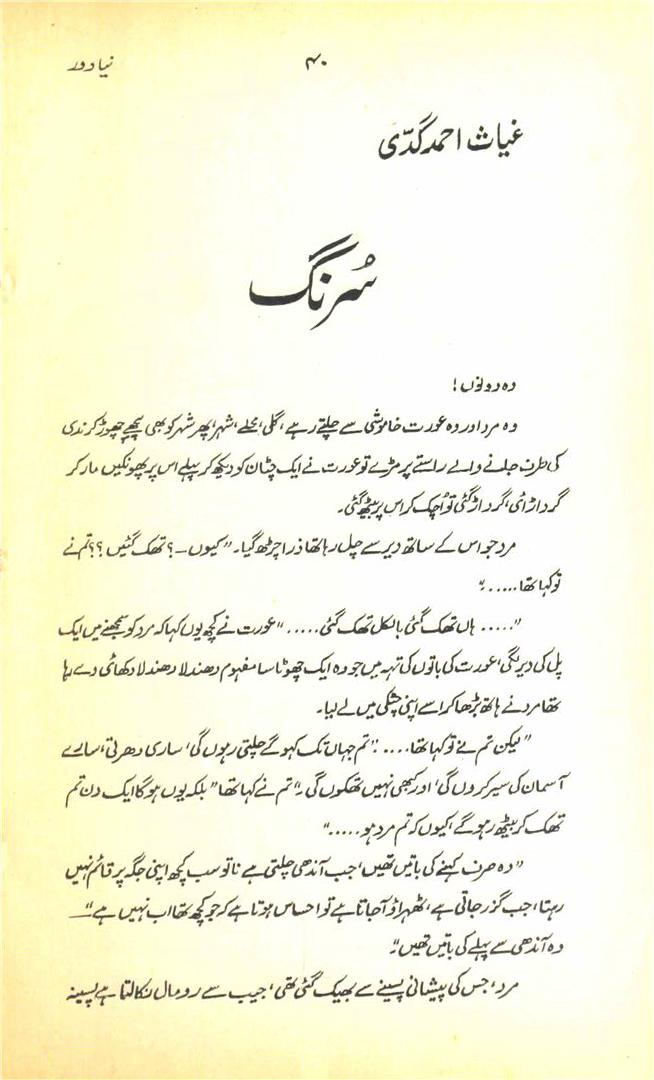 نیا دور
۴۰
غیاث احمد گدّی
سُرنگ
وہ دونوں!
وہ مرد اور وہ عورت خاموشی سے چلتے رہے، گلی، محلے، شہر، پھر شہر کو بھی پیچھے چھوڑ کر ندی
کی طرف جانے والے راستے پر مڑے تو عورت نے ایک چٹان کو دیکھ کر پہلے اس پر پھونکیں مار کر
گرد اڑائی، گرد اڑ گئی تو اُچک کر اس پر بیٹھ گئی۔
مرد جو اس کے ساتھ دیر سے چل رہا تھا ذرا چڑھ گیا۔ "کیوں ــ؟ تھک گئیں؟؟ تم نے
تو کہا تھا ....."
"..... ہاں تھک گئی بالکل تھک گئی ....." عورت نے کچھ یوں کہا کہ مرد کو سمجھنے میں ایک
پل کی دیر لگی، عورت کی باتوں کی تہہ میں جو وہ ایک چھوٹا سا مفہوم دھندلا دھندلا دکھائی دے رہا
تھا مرد نے ہاتھ بڑھا کر اسے اپنی چٹکی میں لے لیا۔
"لیکن تم نے تو کہا تھا ....." تم جہاں تک کہو گے چلتی رہوں گی، ساری دھرتی، سارے
آسمان کی سیر کروں گی، اور کبھی نہیں تھکوں گی۔" تم نے کہا تھا "بلکہ یوں ہو گا ایک دن تم
تھک کر بیٹھ رہو گے، کیوں کہ تم مرد ہو ....."
"وہ صرف کہنے کی باتیں تھیں، جب آندھی چلتی ہے نا تو سب کچھ اپنی جگہ پر قائم نہیں
رہتا، جب گزر جاتی ہے، ٹھہراؤ آ جاتا ہے تو احساس ہوتا ہے کہ جو کچھ تھا اب نہیں ہے"ــ
وہ آندھی سے پہلے کی باتیں تھیں"۔
مرد، جس کی پیشانی پسینے سے بھیگ گئی تھی، جیب سے رومال نکالتا ہے پسینہ